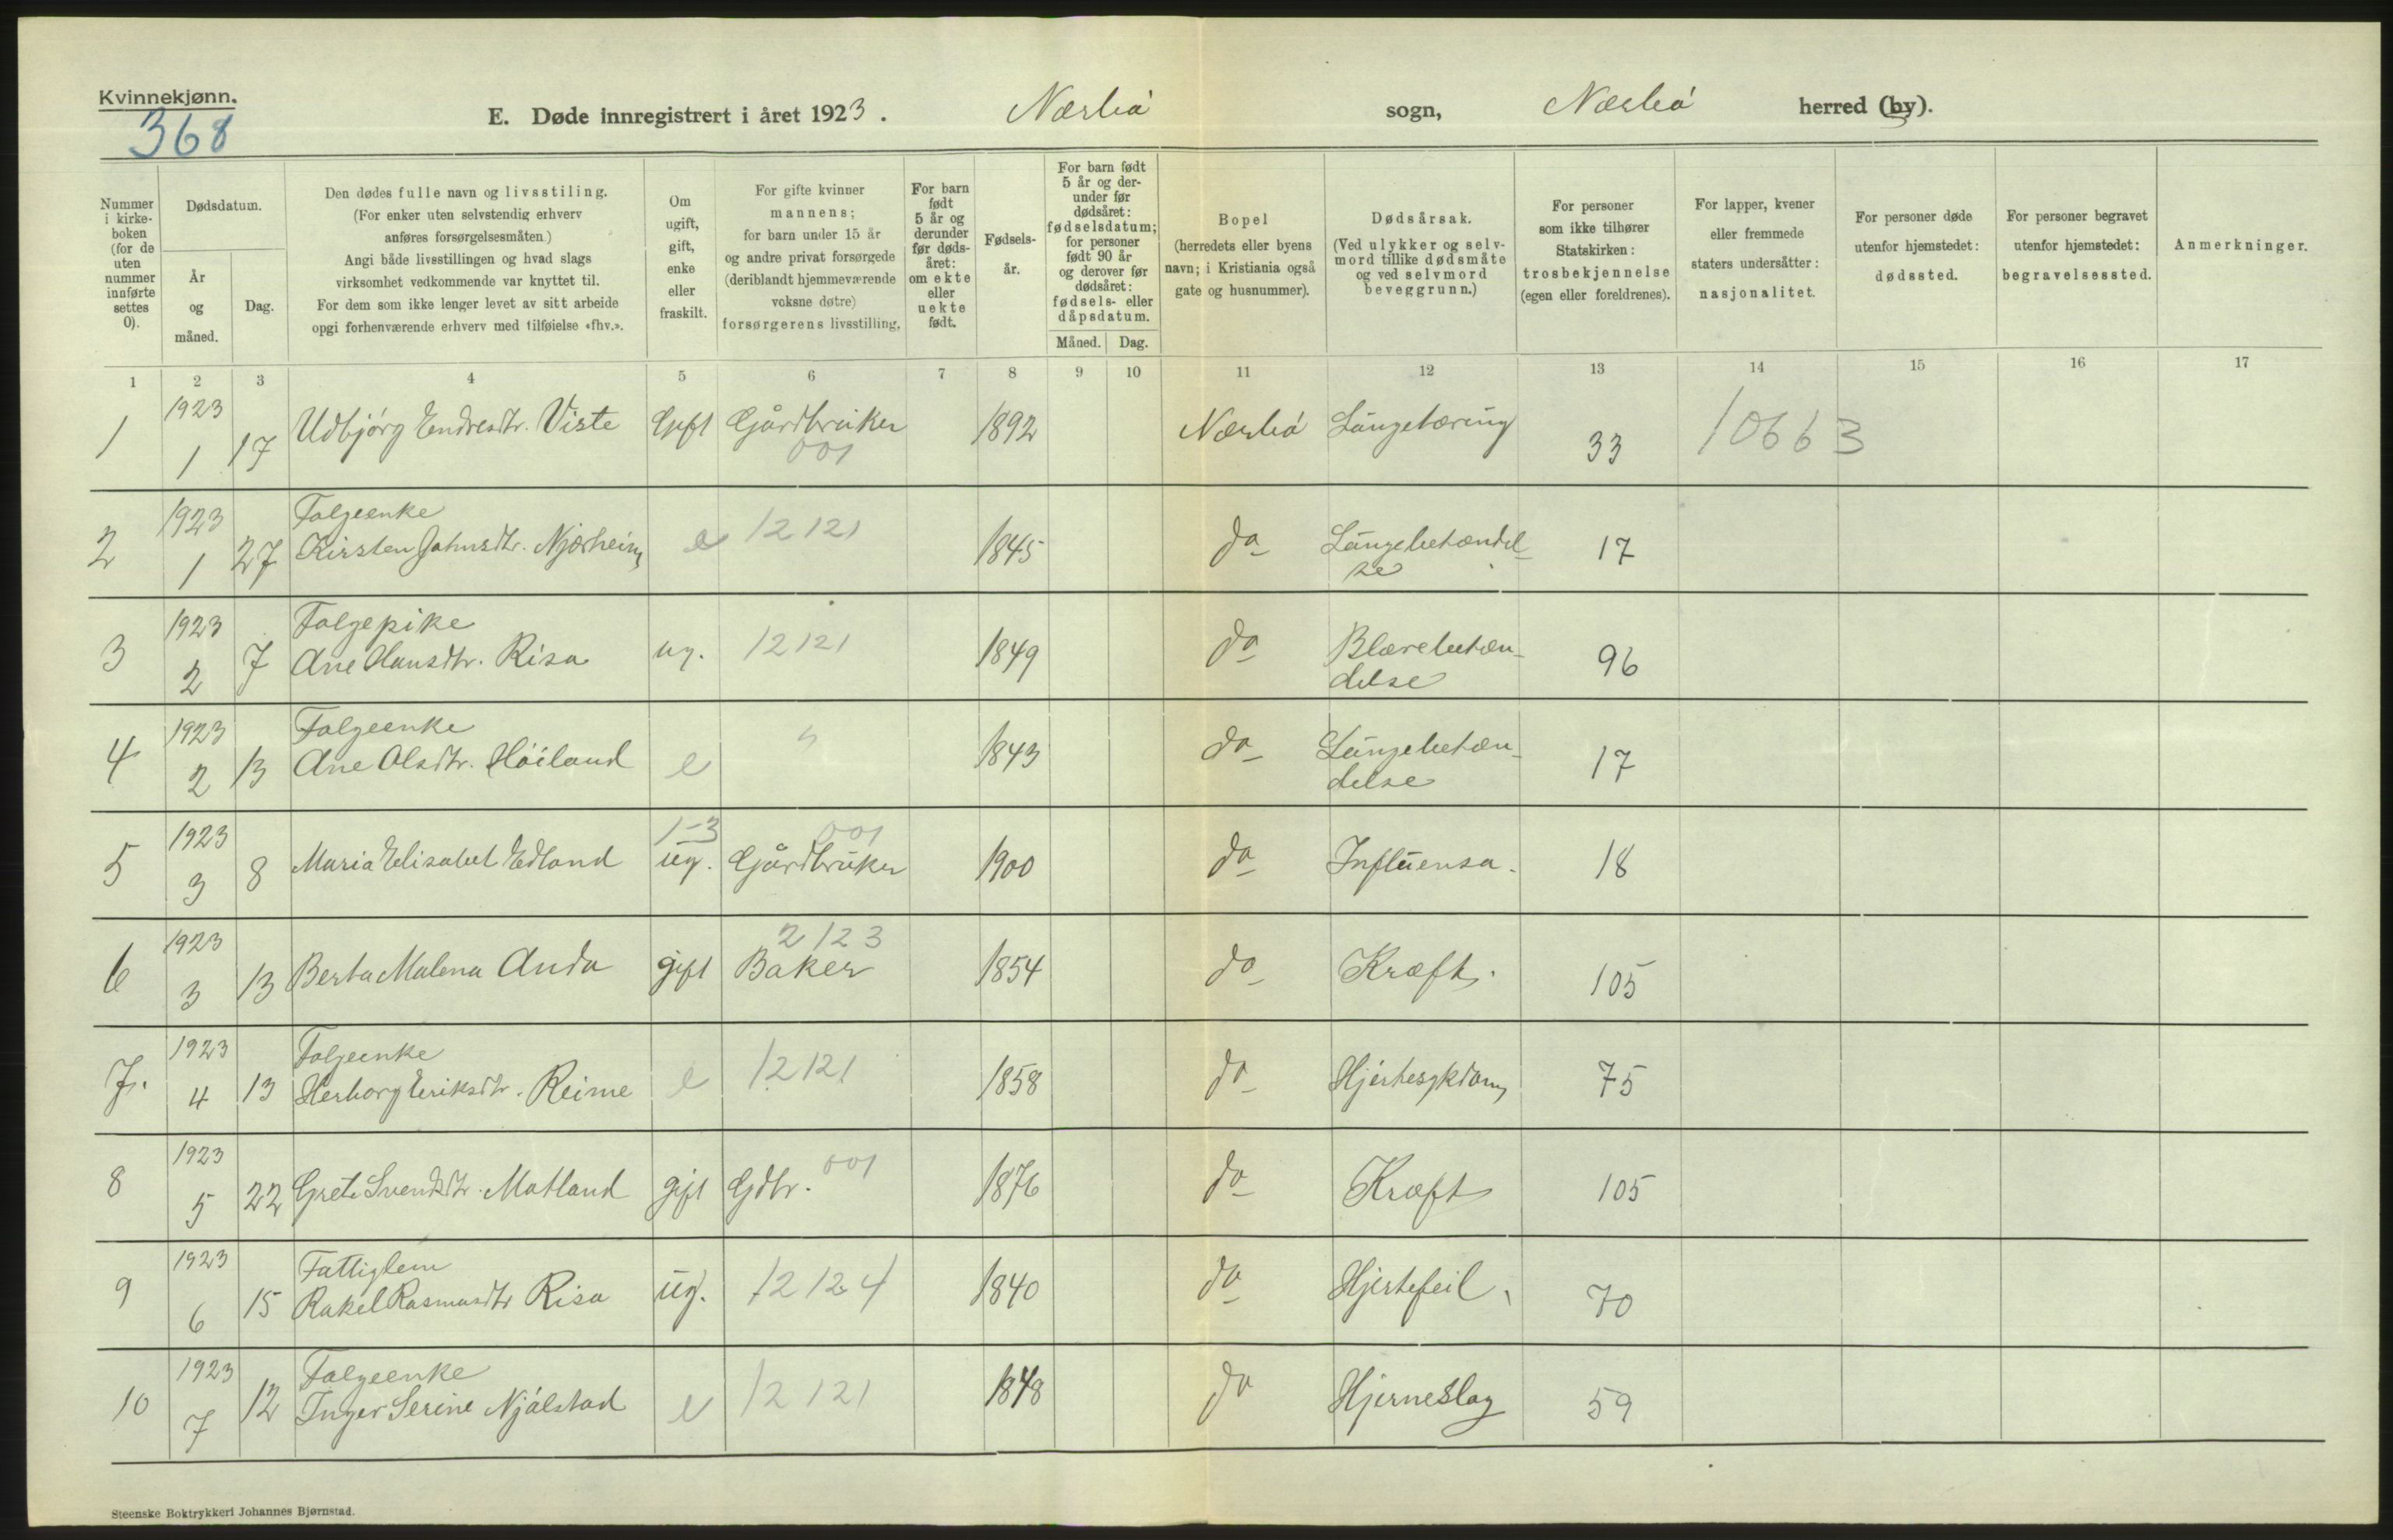 Kvinnekjønn.
368
E. Døde innregistrert i året 1923. Nærbö sogn, Nærbö herred (by).
Nummer i kirke- boken (for de uten nummer innførte settes 0).
Dødsdatum.
År og måned.
Dag.
Den dødes fulle navn og livsstiling.
(For enker uten selvstendig erhverv
anføres forsørgelsesmåten.)
Angi både livsstillingen og hvad slags
virksomhet vedkommende var knyttet til.
For dem som ikke lenger levet av sitt arbeide
opgi forhenværende erhverv med tilføielse «fhv.».
Om ugift, gift, enke eller fraskilt.
For gifte kvinner
mannens;
for barn under 15 år
og andre privat forsørgede
(deriblandt hjemmeværende
voksne døtre)
forsørgerens livsstilling.
For barn født 5 år og derunder før døds- året: om ekte eller uekte født.
Fødsels- år.
For barn født 5 år og der- under før dødsåret: fødselsdatum; for personer født 90 år og derover før dødsåret: fødsels- eller dåpsdatum.
Måned. Dag.
Bopel
(herredets eller byens
navn; i Kristiania også
gate og husnummer).
Dødsårsak.
(Ved ulykker og selv-
mord tillike dødsmåte
og ved selvmord
beveggrunn.)
For personer
som ikke tilhører
Statskirken:
trosbekjennelse
(egen eller foreldrenes).
For lapper, kvener
eller fremmede
staters undersåtter:
nasjonalitet.
For personer døde
utenfor hjemstedet:
dødssted.
For personer begravet
utenfor hjemstedet:
begravelsessted.
Anmerkninger.
1 2 3 4 5 6 7 8 9 10 11 12 13 14 15 16 17
1 1923 1 17 Udbjörg Endresdtr. Viste Gift Gårdbruker 001 1892 Nærbö Lungetæring 33 10663
2 1923 1 27 Folgeenke
Kirsten Johnsdtr. Njærheim e 12121 1845 do Lungebetændel-
se 17
3 1923 2 7 Folgepike
Ane Hansdtr. Risa ug. 12121 1849 do Blærebetæn-
delse 96
4 1923 2 13 Folgeenke
Ane Olsdtr. Höiland e " 1843 do Lungebetæn-
delse 17
5 1923 3 8 Maria Elisabet Edland 1-3 ug. Gårdbruker 001 1900 do Influensa. 18
6 1923 3 13 Berta Malena Anda gift 2123 Baker 1854 do Kræft. 105
7. 1923 4 13 Folgeenke
Herborg Eriksdtr. Reime e 12121 1858 do Hjertesykdom 75
8 1923 5 22 Grete Svendsdtr. Matland gift Gdbr. 001 1876 do Kræft 105
9 1923 6 15 Fattiglem
Rakel Rasmusdtr Risa ug. 12124 1840 do Hjertefeil. 70
10 1923 7 12 Folgeenke
Inger Serine Njålstad e 12121 1848 do Hjerneslag 59
Steenske Boktrykkeri Johannes Bjørnstad.